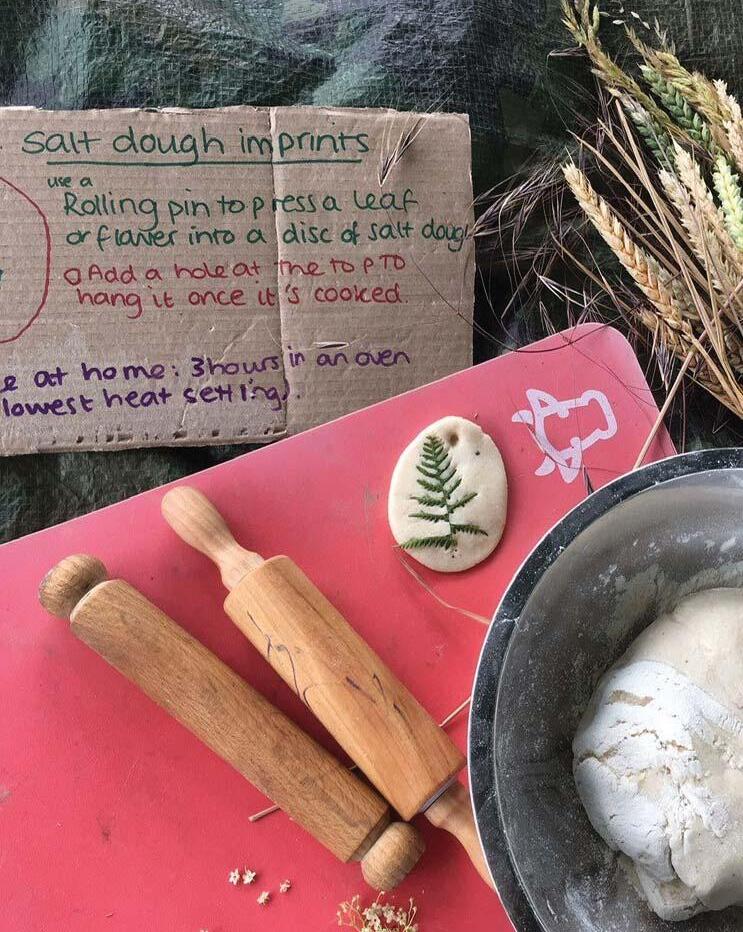 salt dough imprints
use a
Rolling pin to press a leaf
or flower into a disc of salt dough
Add a hole at the top to
hang it once it's cooked.
at home: 3 hours in an oven
lowest heat setting.